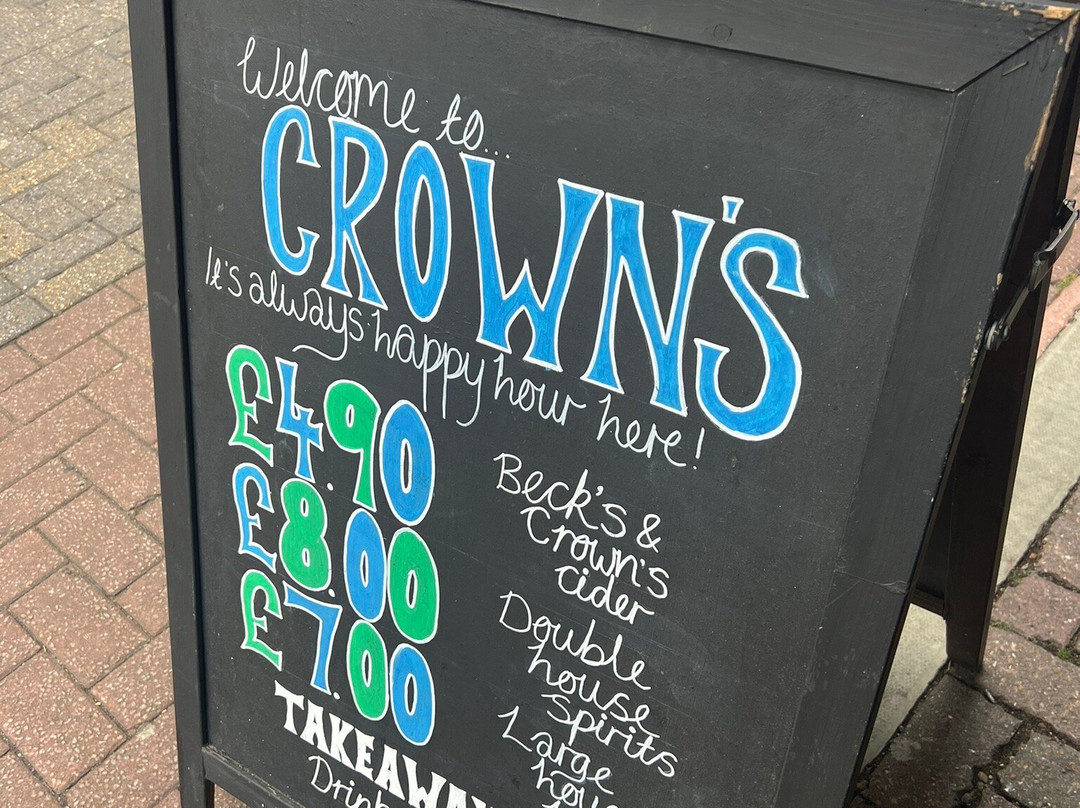 Welcome to...
CROWN'S
It's always happy hour here!
£4.90
Beck's &
Crown's
cider
£8.00
Double
house
Spirits
£7.00
Large
TAKEAWAY